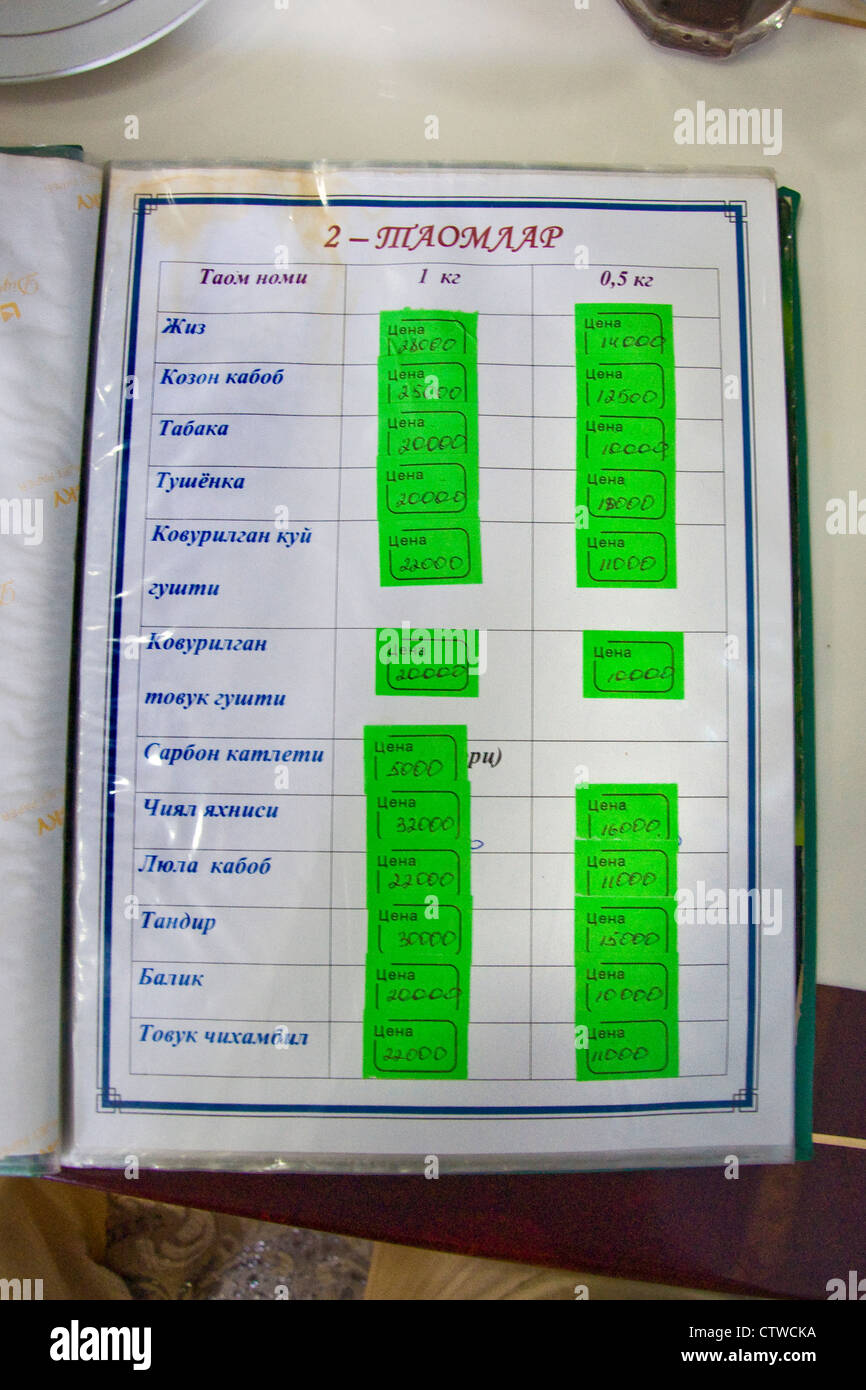 2 – ТАОМЛАР
Таом номи 1 кг 0,5 кг
Жиз Цена 28000 Цена 14000
Козон кабоб Цена 25000 Цена 12500
Табака Цена 20000 Цена 10000
Тушёнка Цена 20000 Цена
Ковурилган куй Цена 22000 Цена 11000
гушти
Ковурилган Цена 20000 Цена 10000
товук гушти
Сарбон катлети Цена 5000 рц)
Чиял яхниси Цена 32000 Цена 16000
Люла кабоб Цена 22000 Цена 11000
Тандир Цена 30000 Цена 15000
Балик Цена 20000 Цена 10000
Товук чихамбил Цена 22000 Цена 11000
alamy
a
alamy stock photo
CTWCKA
www.alamy.com